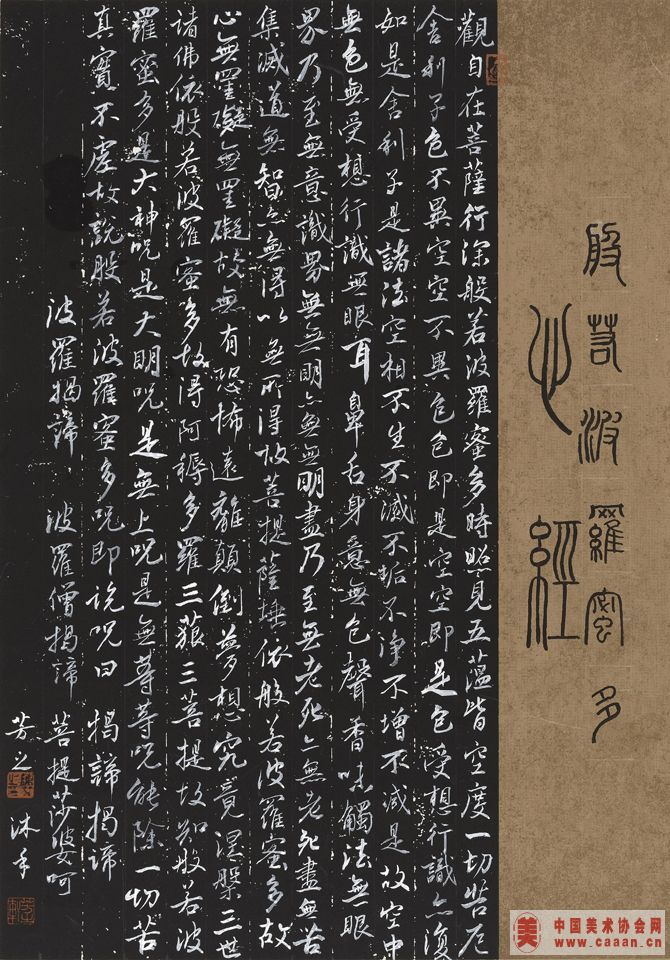 般若波羅蜜多
心經
觀自在菩薩行深般若波羅蜜多時照見五蘊皆空度一切苦厄
舍利子色不異空空不異色色即是空空即是色受想行識亦復
如是舍利子是諸法空相不生不滅不垢不净不增不減是故空中
無色無受想行識無眼耳鼻舌身意無色聲香味觸法無眼
界乃至無意識界無無明亦無無明盡乃至無老死亦無老死盡無苦
集滅道無智亦無得以無所得故菩提薩埵依般若波羅蜜多故
心無罣礙無罣礙故無有恐怖遠離顛倒夢想究竟涅槃三世
諸佛依般若波羅蜜多故得阿耨多羅三藐三菩提故知般若波
羅蜜多是大神呪是大明呪是無上呪是無等等呪能除一切苦
真實不虛故說般若波羅蜜多呪即說呪曰 揭諦揭諦
波羅揭諦 波羅僧揭諦 菩提莎婆呵
芳之 沐手
美 中国美术协会网
www.caaan.cn